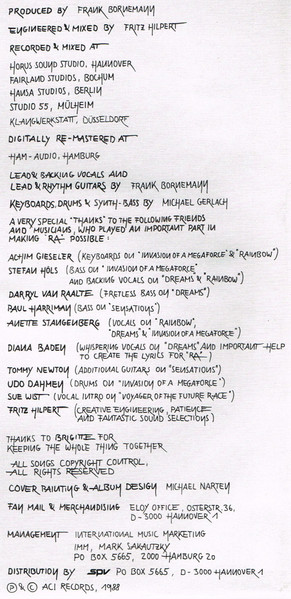 PRODUCED BY FRANK BORNEMANN
ENGINEERED & MIXED BY FRITZ HILPERT
RECORDED & MIXED AT
HORUS SOUND STUDIO, HANNOVER
FAIRLAND STUDIOS, BOCHUM
HANSA STUDIOS, BERLIN
STUDIO 55, MÜLHEIM
KLANGWERKSTATT, DÜSSELDORF
DIGITALLY RE-MASTERED AT
HAM-AUDIO, HAMBURG
LEAD & BACKING VOCALS AND
LEAD & RHYTHM GUITARS BY FRANK BORNEMANN
KEYBOARDS, DRUMS & SYNTH-BASS BY MICHAEL GERLACH
A VERY SPECIAL "THANKS" TO THE FOLLOWING FRIENDS
AND MUSICIANS, WHO PLAYED AN IMPORTANT PART IN
MAKING "RA" POSSIBLE:
ACHIM GIESELER (KEYBOARDS ON "INVASION OF A MEGAFORCE" & "RAINBOW")
STEFAN HÖLS (BASS ON "INVASION OF A MEGAFORCE"
AND BACKING VOCALS ON "DREAMS & "RAINBOW")
DARRYL VAN RAALTE (FRETLESS BASS ON "DREAMS")
PAUL HARRIMAN (BASS ON "SENSATIONS")
ANETTE STANGENBERG (VOCALS ON "RAINBOW",
"DREAMS" & "INVASION OF A MEGAFORCE")
DIANA BADEN (WHISPERING VOCALS ON "DREAMS" AND IMPORTANT HELP
TO CREATE THE LYRICS FOR "RA")
TOMMY NEWTON (ADDITIONAL GUITARS ON "SENSATIONS")
UDO DAHMEN (DRUMS ON "INVASION OF A MEGAFORCE")
SUE WIST (VOCAL INTRO ON "VOYAGER OF THE FUTURE RACE")
FRITZ HILPERT (CREATIVE ENGINEERING, PATIENCE
AND FANTASTIC SOUND SELECTIONS)
THANKS TO BRIGITTE FOR
KEEPING THE WHOLE THING TOGETHER
ALL SONGS COPYRIGHT CONTROL,
ALL RIGHTS RESERVED
COVER PAINTING & ALBUM DESIGN MICHAEL NARTEN
FAN MAIL & MERCHANDISING ELOY OFFICE, OSTERSTR. 36,
D-3000 HANNOVER 1
MANAGEMENT INTERNATIONAL MUSIC MARKETING
IMM, MARK SAKAUTZKY
PO BOX 5665, 2000 HAMBURG 20
DISTRIBUTION BY SPV PO BOX 5665, D-3000 HANNOVER 1
℗ & © ACI RECORDS, 1988